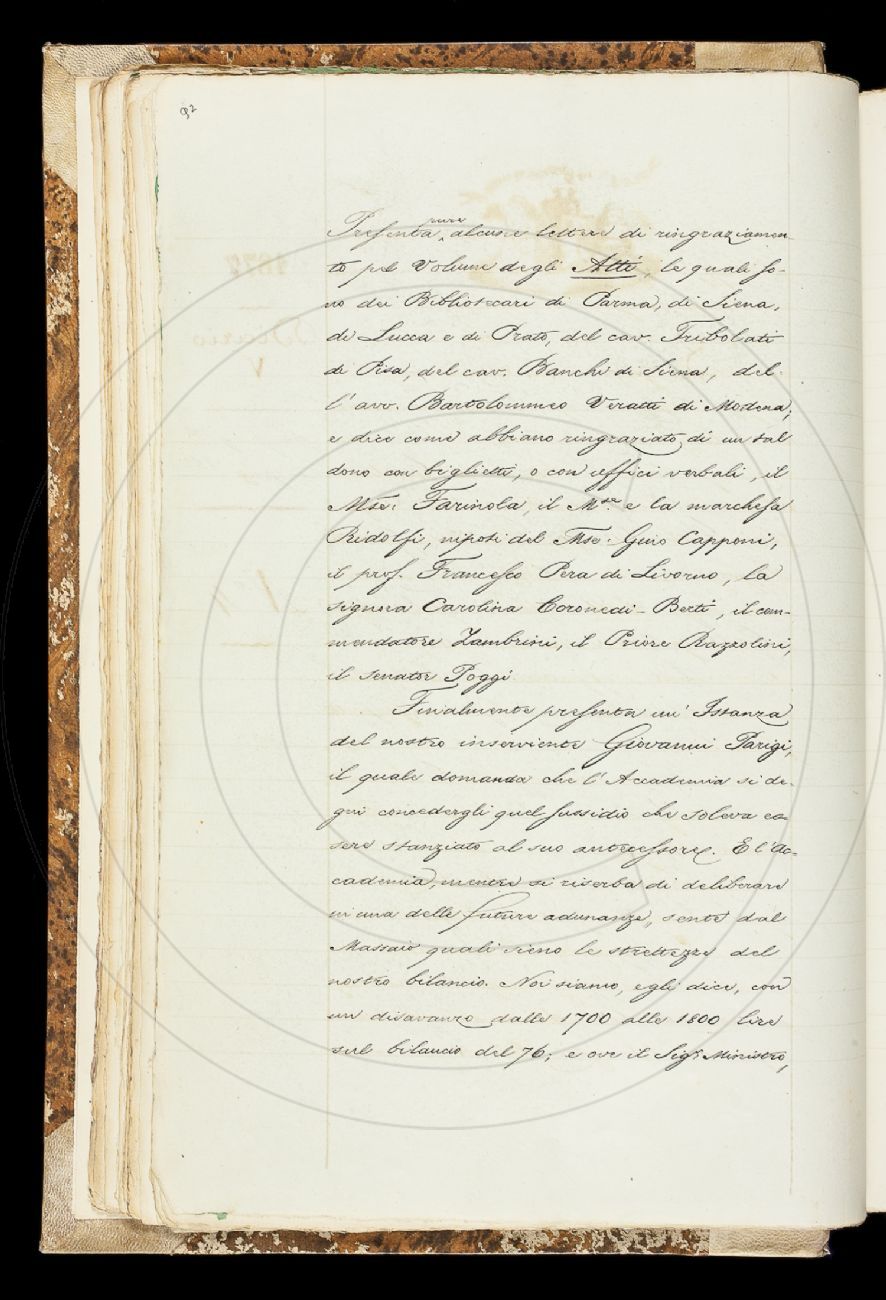 92
Presenta pure alcune lettere di ringraziamen-
to pel Volume degli Atti, le quali so-
no dei Bibliotecari di Parma, di Siena,
di Lucca e di Prato, del cav. Tribolati
di Pisa, del cav. Banchi di Siena, del-
l'avv. Bartolommeo Veratti di Modena;
e dice come abbiano ringraziato di un tal
dono con biglietti, o con uffici verbali, il
Mse: Farinola, il M.se e la marchesa
Ridolfi, nipoti del Mse. Gino Capponi,
il prof. Francesco Pera di Livorno, la
signora Carolina Coronedi-Berti, il com-
mendatore Zambrini, il Priore Razzolini,
il senator Poggi
Finalmente presenta un' Istanza
del nostro inserviente Giovanni Parigi,
il quale domanda che l'Accademia si de-
gni concedergli quel sussidio che soleva es-
sere stanziato al suo antecessore. E l'Ac-
cademia, mentre si riserba di deliberare
in una delle future adunanze, sente dal
Massaio quali sieno le strettezze del
nostro bilancio. Noi siamo, egli dice, con
un disavanzo dalle 1700 alle 1800 lire
sul bilancio del 76; e ove il Sig.r Ministro,